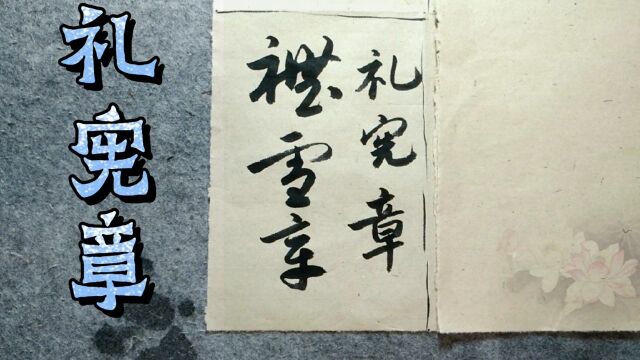 礼宪章
礼宪章
禮憲章